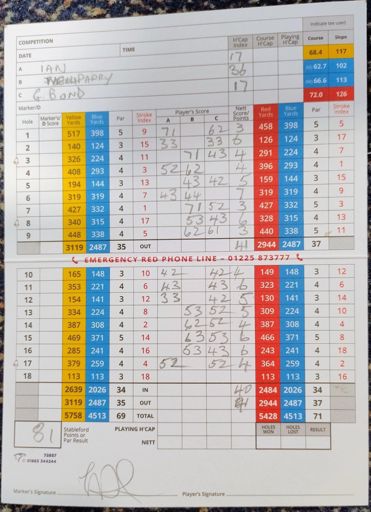 Indicate tee used
H'Cap Index Course H'Cap Playing H'Cap Course Slope
COMPETITION 68.4 117
DATE TIME 17 62.7 102
A IAN 36 66.6 113
B
C G. BOND 17 72.0 126
Marker/D
Hole Marker's/D Score Yellow Yards Blue Yards Par Stroke Index Player's Score A B C Nett Score/Points Red Yards Blue Yards Par Stroke Index
1 517 398 5 9 71 62 3 458 398 5 5
2 140 124 3 15 33 33 6 126 124 3 17
3 326 224 4 11 71 43 4 291 224 4 7
4 408 293 4 3 52 62 4 396 293 4 1
5 194 144 3 13 43 42 5 159 144 3 15
6 319 319 4 7 43 44 7 319 319 4 9
7 427 332 4 1 71 52 3 427 332 5 3
8 340 315 4 17 53 43 6 328 315 4 13
9 448 338 4 5 62 61 3 440 338 5 11
3119 2487 35 OUT 41 2944 2487 37
EMERGENCY RED PHONE LINE – 01225 873777
10 165 148 3 10 42 42 4 149 148 3 12
11 353 221 4 6 43 43 6 323 221 4 6
12 154 141 3 12 33 42 5 130 141 3 14
13 334 224 4 8 53 52 5 309 224 4 10
14 387 308 4 2 62 52 4 387 308 4 4
15 469 371 5 14 63 53 6 466 371 5 8
16 285 241 4 16 53 43 6 243 241 4 18
17 379 259 4 4 52 52 4 364 259 4 2
18 113 113 3 18 113 113 3 16
2639 2026 34 IN 40 2484 2026 34
3119 2487 35 OUT 41 2944 2487 37
5758 4513 69 TOTAL 5428 4513 71
81 Stableford Points or Par Result PLAYING H'CAP HOLES WON HOLES LOST RESULT
NETT
Marker's Signature Player's Signature